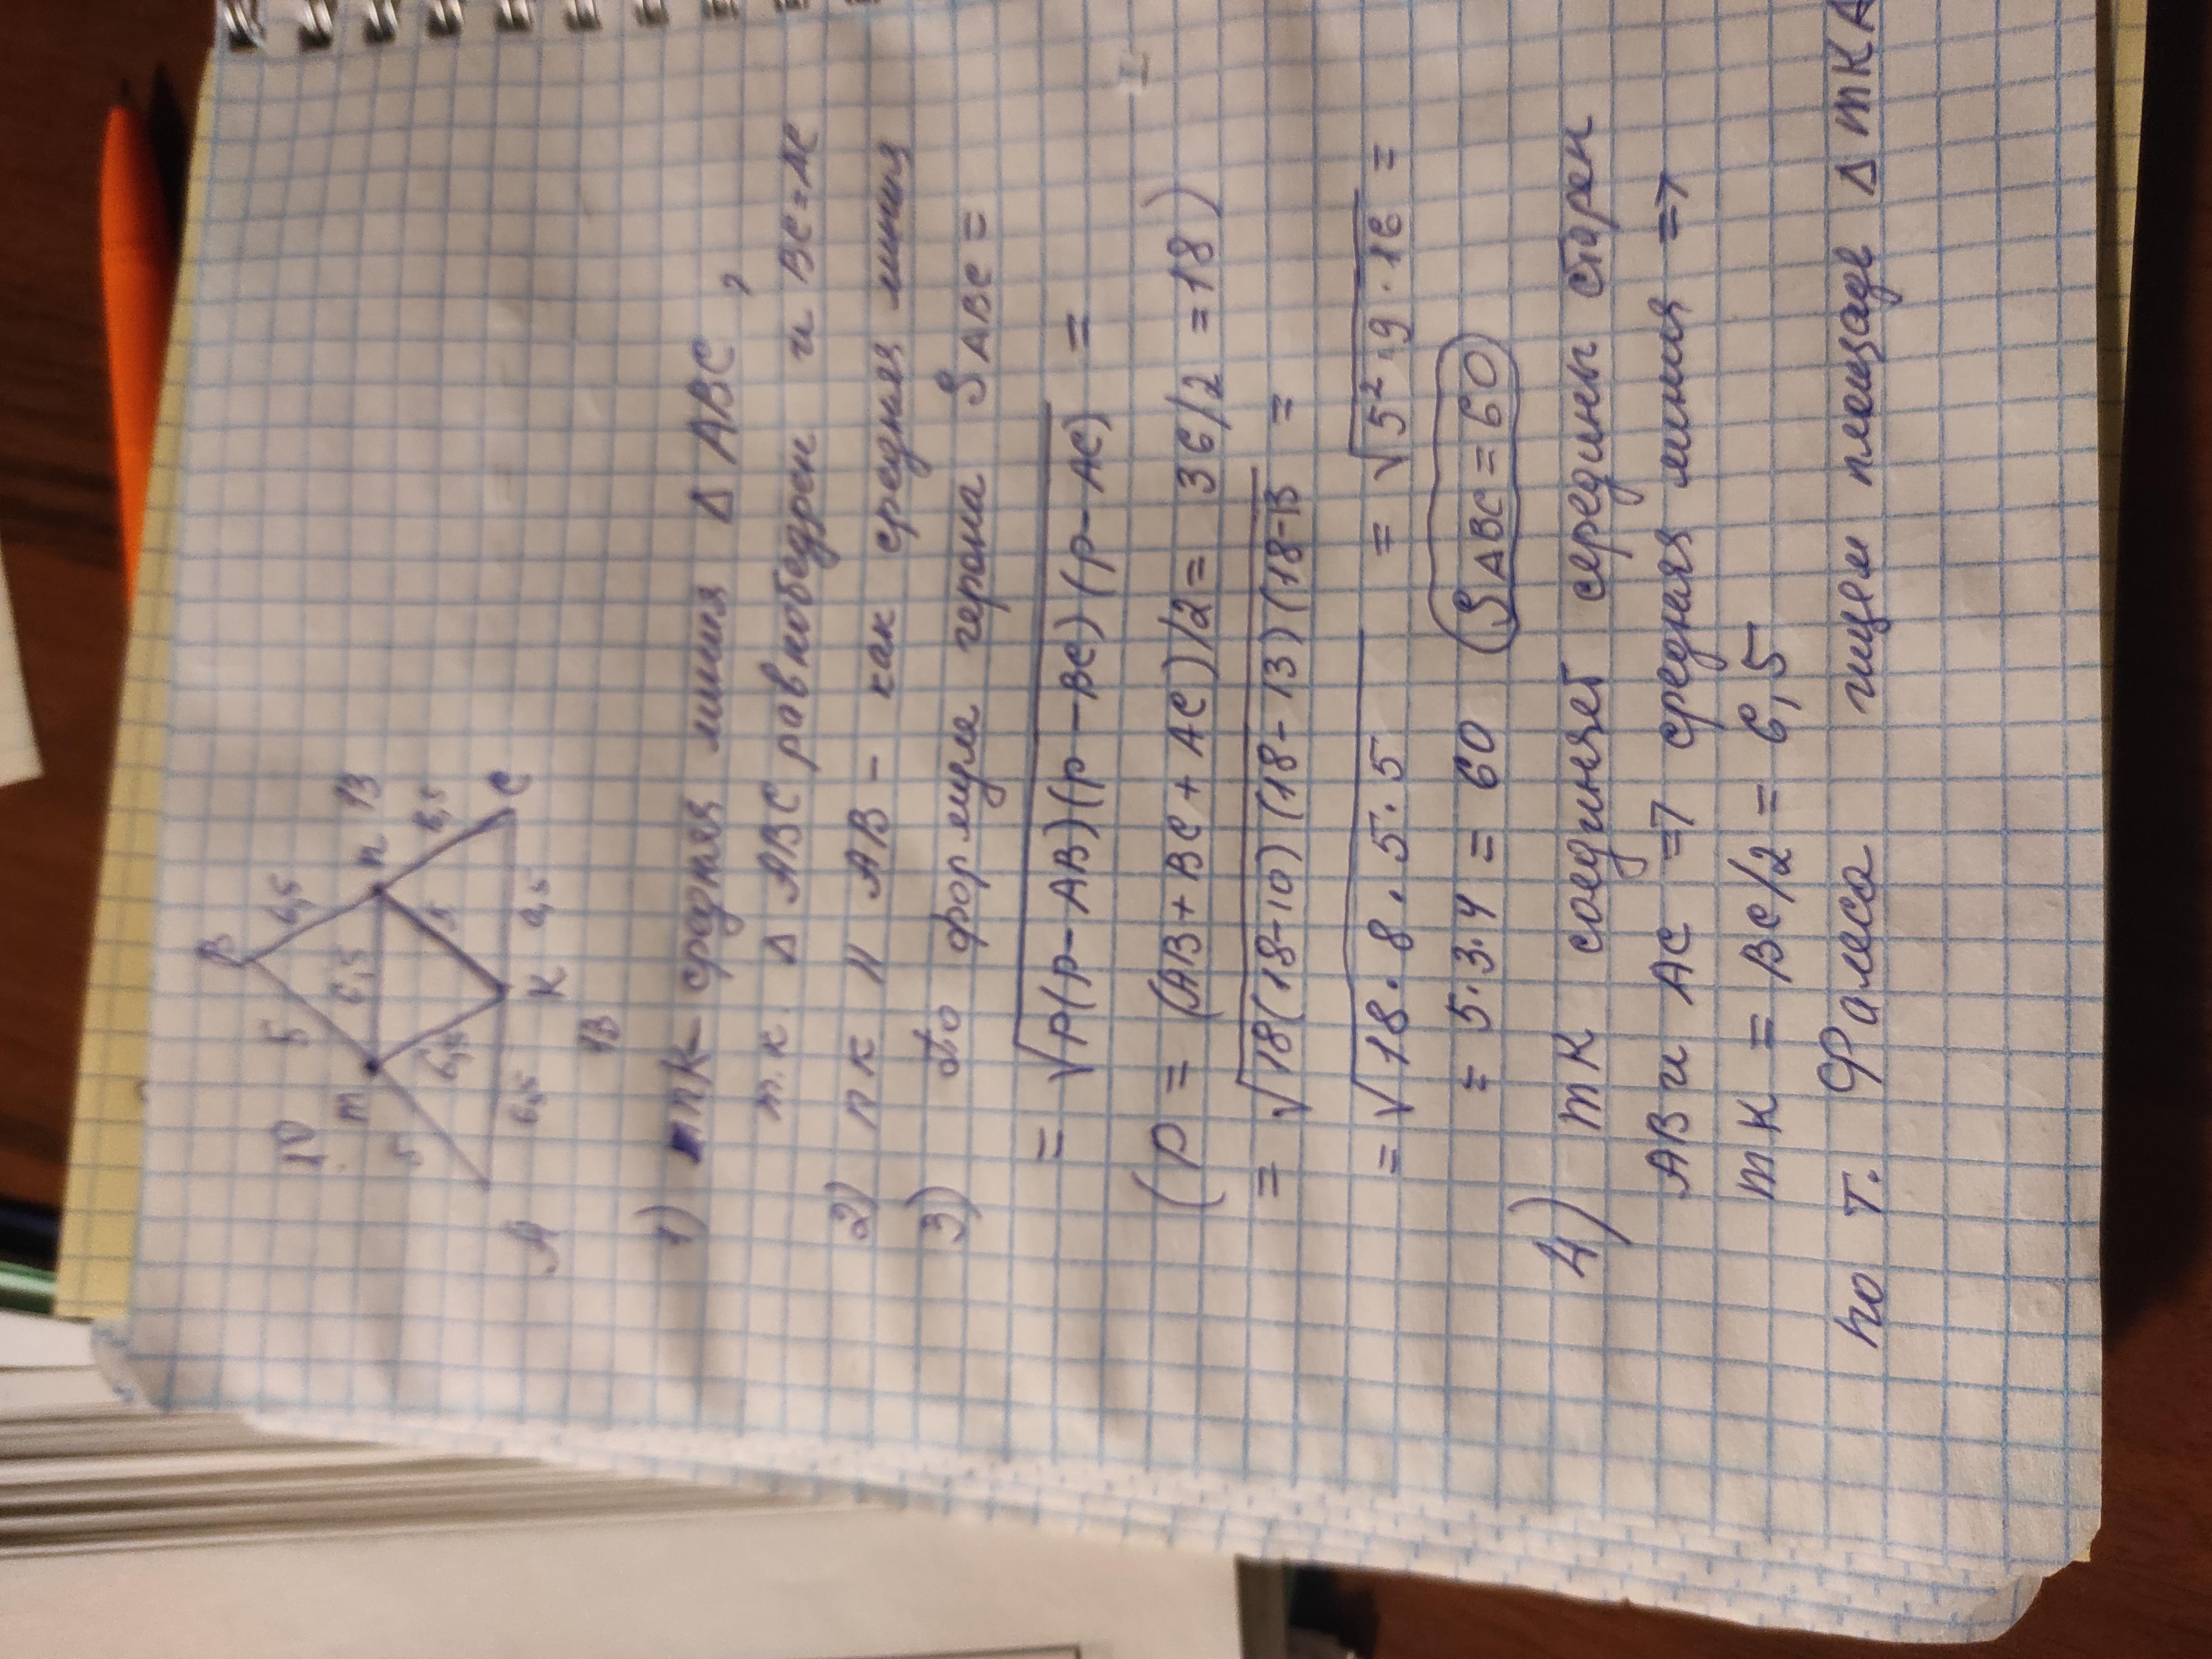 B
10
5
6,5
13
m
6,5
n
5
6,5
5
6,5
A
6,5
K
6,5
C
13
1) nK - средняя линия Δ ABC,
т.к. Δ ABC равнобедрен и BC = AC
2) nK || AB - как средняя линия
3) по формуле герона S ABC =
= √p(p-AB)(p-BC)(p-AC) =
(p = (AB+BC+AC)/2 = 36/2 = 18)
= √18(18-10)(18-13)(18-13 =
= √18·8·5·5 = √5²·9·16 =
= 5·3·4 = 60 (S ABC = 60)
4) mK соединяет середины сторен
AB и AC => средняя линия =>
mK = BC/2 = 6,5
по т. Фалеса ищем площадь Δ mKA